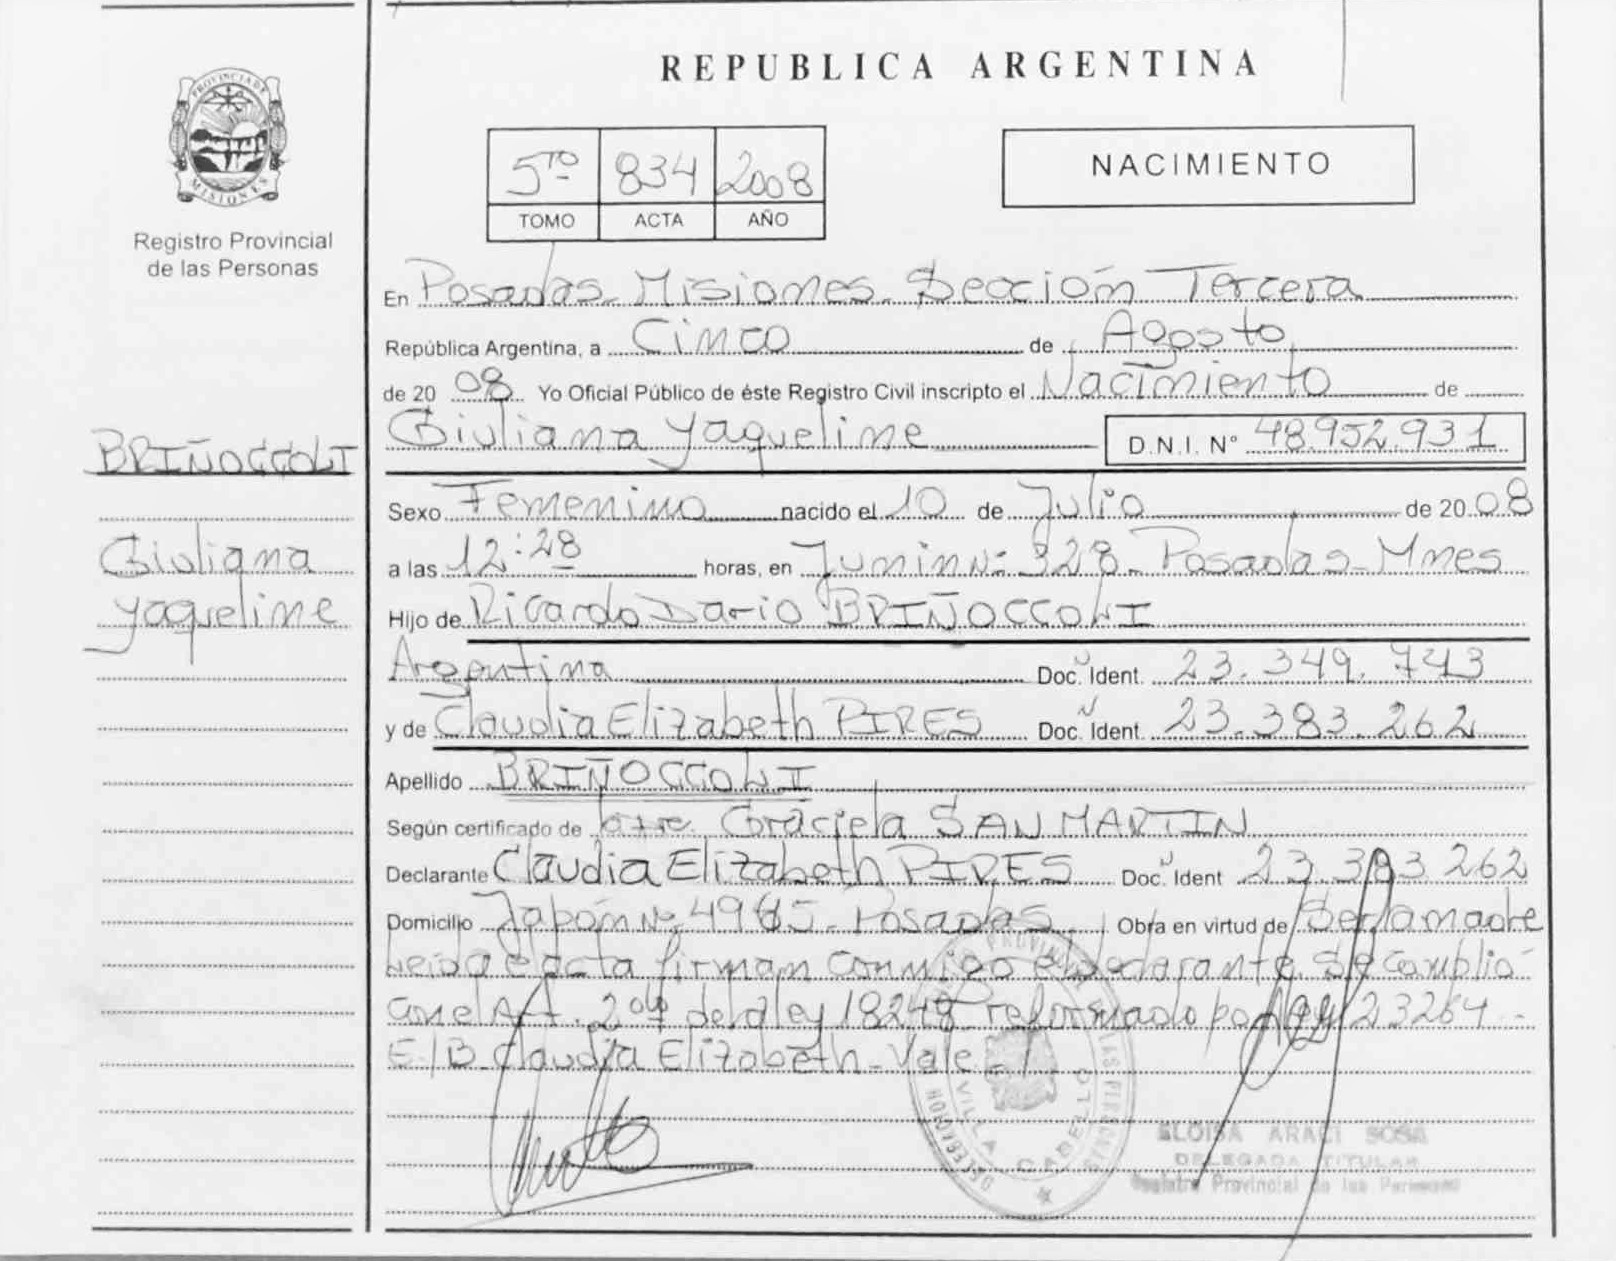 PROVINCIA DE MISIONES
Registro Provincial
de las Personas
BRIÑOCCOLI
Giuliana
Yaqueline
REPUBLICA ARGENTINA
5TO 834 2008
TOMO ACTA AÑO
NACIMIENTO
En Posadas - Misiones - Sección Tercera
República Argentina, a Cinco de Agosto
de 20 08 Yo Oficial Público de éste Registro Civil inscripto el Nacimiento de
Giuliana Yaqueline D.N.I. N° 48.952.931
Sexo Femenino nacido el 10 de Julio de 20 08
a las 12:28 horas, en Junin Nº 328 - Posadas - Mnes
Hijo de Ricardo Dario BRIÑOCCOLI
Argentina Doc. Ident. 23.349.743
y de Claudia Elizabeth PIRES Doc. Ident. 23.383.262
Apellido BRIÑOCCOLI
Según certificado de Graciela SAN MARTIN
Declarante Claudia Elizabeth PIRES Doc. Ident 23.383.262
Domicilio Japón Nº 4965 - Posadas Obra en virtud de Ser la madre
Leida el acta firman conmigo el declarante. Se cumplió
con el Art. 2º de la ley 18248 reformado por ley 23264 -
E./B. Claudia Elizabeth - Vale.
DELEGACION VILLA CABELLO
ELOISA ARACI SOSA
DELEGADA TITULAR
Registro Provincial de las Personas